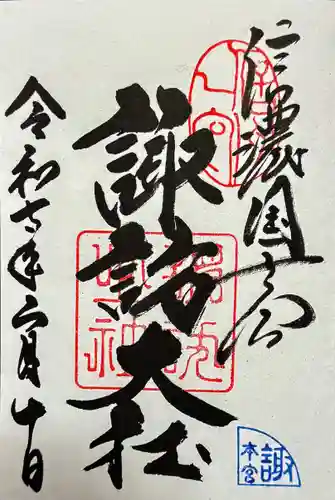 信濃國一之宮
諏訪大社
令和六年二月十日
諏
本宮